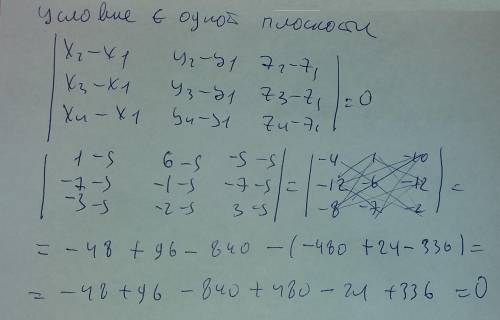 Условие ∈ одной плоскости
|x₂-x₁ y₂-y₁ z₂-z₁|
|x₃-x₁ y₃-y₁ z₃-z₁| =0
|x₄-x₁ y₄-y₁ z₄-z₁|
|1-5 6-5 -5-5| |-4 1 -10|
|-7-5 -1-5 -7-5| = |-12 -6 -12| =
|-3-5 -2-5 3-5| |-8 -7 -2|
= -48 + 96 - 840 - (-480 + 24 - 336) =
= -48 + 96 - 840 + 480 - 24 + 336 = 0